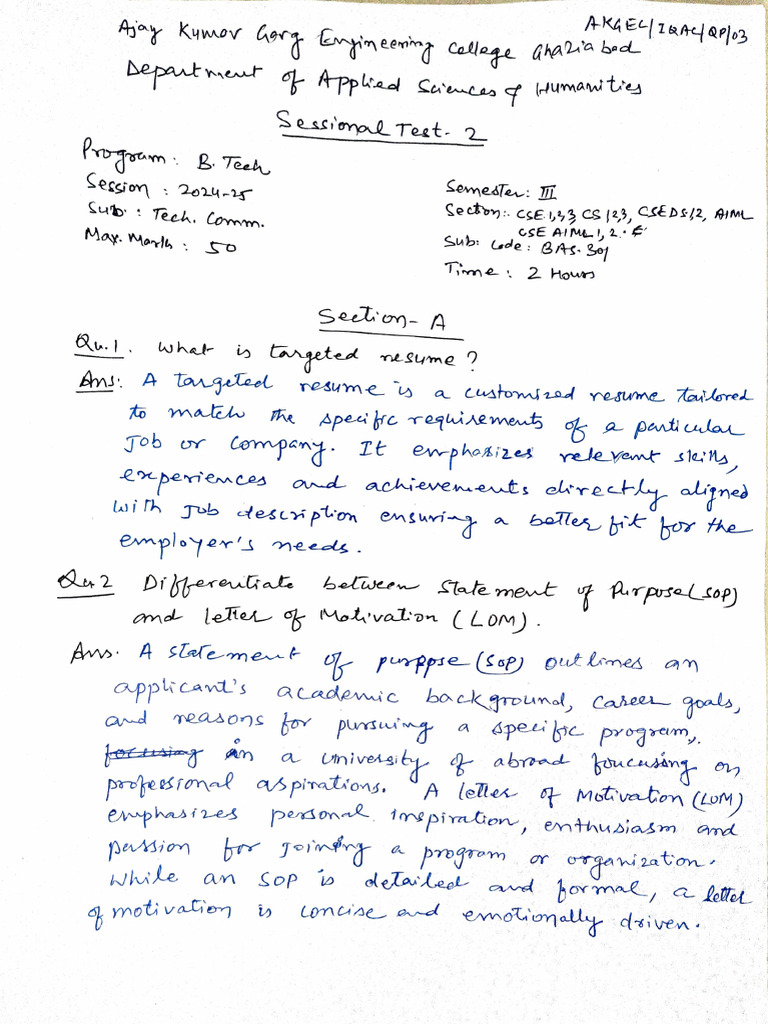 AKGEC/IQAC/QP/03
Ajay Kumar Garg Engineering College Ghaziabad
Department of Applied Sciences & Humanities
Sessional Test- 2
Program: B. Tech
Session : 2024-25
Sub. : Tech. Comm.
Max. Marks : 50
Semester: III
Section:- CSE 1,2,3, CS 1,2,3, CSE DS 1,2, AIML
CSE AIML 1, 2.
Sub. Code: BAS-301
Time : 2 Hours
Section- A
Qu.1. What is targeted resume?
Ans: A targeted resume is a customized resume tailored
to match the specific requirements of a particular
Job or company. It emphasizes relevant skills,
experiences and achievements directly aligned
with Job description ensuring a better fit for the
employer's needs.
Qu.2 Differentiate between Statement of Purpose (SOP)
and letter of Motivation (LOM).
Ans. A statement of purppse (SOP) outlines an
applicant's academic background, career goals,
and reasons for pursuing a specific program,
focusing in a university of abroad foucusing on
professional aspirations. A letter of Motivation (LOM)
emphasizes personal inspiration, enthusiasm and
passion for Joining a program or organization.
While an SOP is detailed and formal, a letter
of motivation is concise and emotionally driven.